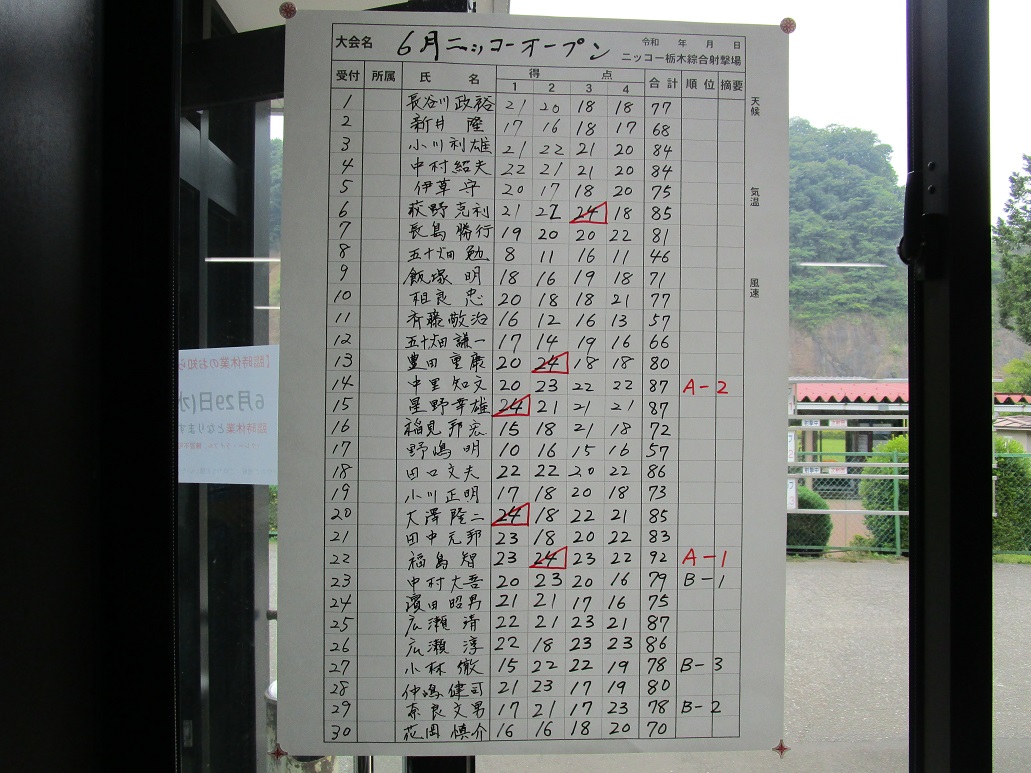 大会名 6月ニッコーオープン 令和 年 月 日
ニッコー栃木綜合射撃場
受付 所属 氏名 得点 合計 順位 摘要
1 2 3 4
1 長谷川政裕 21 20 18 18 77
2 新井 隆 17 16 18 17 68
3 小川利雄 21 22 21 20 84
4 中村紹夫 22 21 21 20 84
5 伊草 守 20 17 18 20 75
6 荻野克利 21 22 24 18 85
7 長島勝行 19 20 20 22 81
8 五十畑 勉 8 11 16 11 46
9 飯塚 明 18 16 19 18 71
10 相良 忠 20 18 18 21 77
11 斉藤敬治 16 12 16 13 57
12 五十畑謙一 17 14 19 16 66
13 豊田重康 20 24 18 18 80
14 中里知文 20 23 22 22 87 A-2
15 星野幸雄 24 21 21 21 87
16 稲見邦宏 15 18 21 18 72
17 野嶋 明 10 16 15 16 57
18 田口文夫 22 22 20 22 86
19 小川正明 17 18 20 18 73
20 大澤隆二 24 18 22 21 85
21 田中元邦 23 18 20 22 83
22 福島 智 23 24 23 22 92 A-1
23 中村大吾 20 23 20 16 79 B-1
24 濱田昭男 21 21 17 16 75
25 広瀬 靖 22 21 23 21 87
26 広瀬 淳 22 18 23 23 86
27 小林 徹 15 22 22 19 78 B-3
28 仲嶋健司 21 23 17 19 80
29 奈良文男 17 21 17 23 78 B-2
30 花岡慎介 16 16 18 20 70
天候
気温
風速
【臨時休業のお知ら
6月29日(水
臨時休業となります